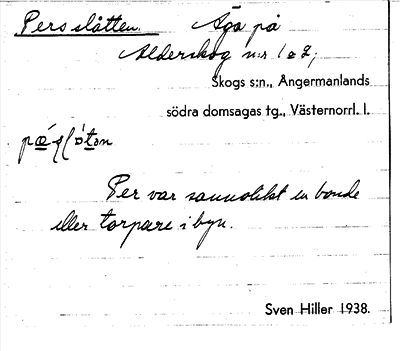 Persslåtten. Äga på
Alderskog n:r 1 o 2,
Skogs s:n., Ångermanlands
södra domsagas tg., Västernorrl. l.
Per var sannolikt en bonde
eller torpare i byn.
Sven Hiller 1938.